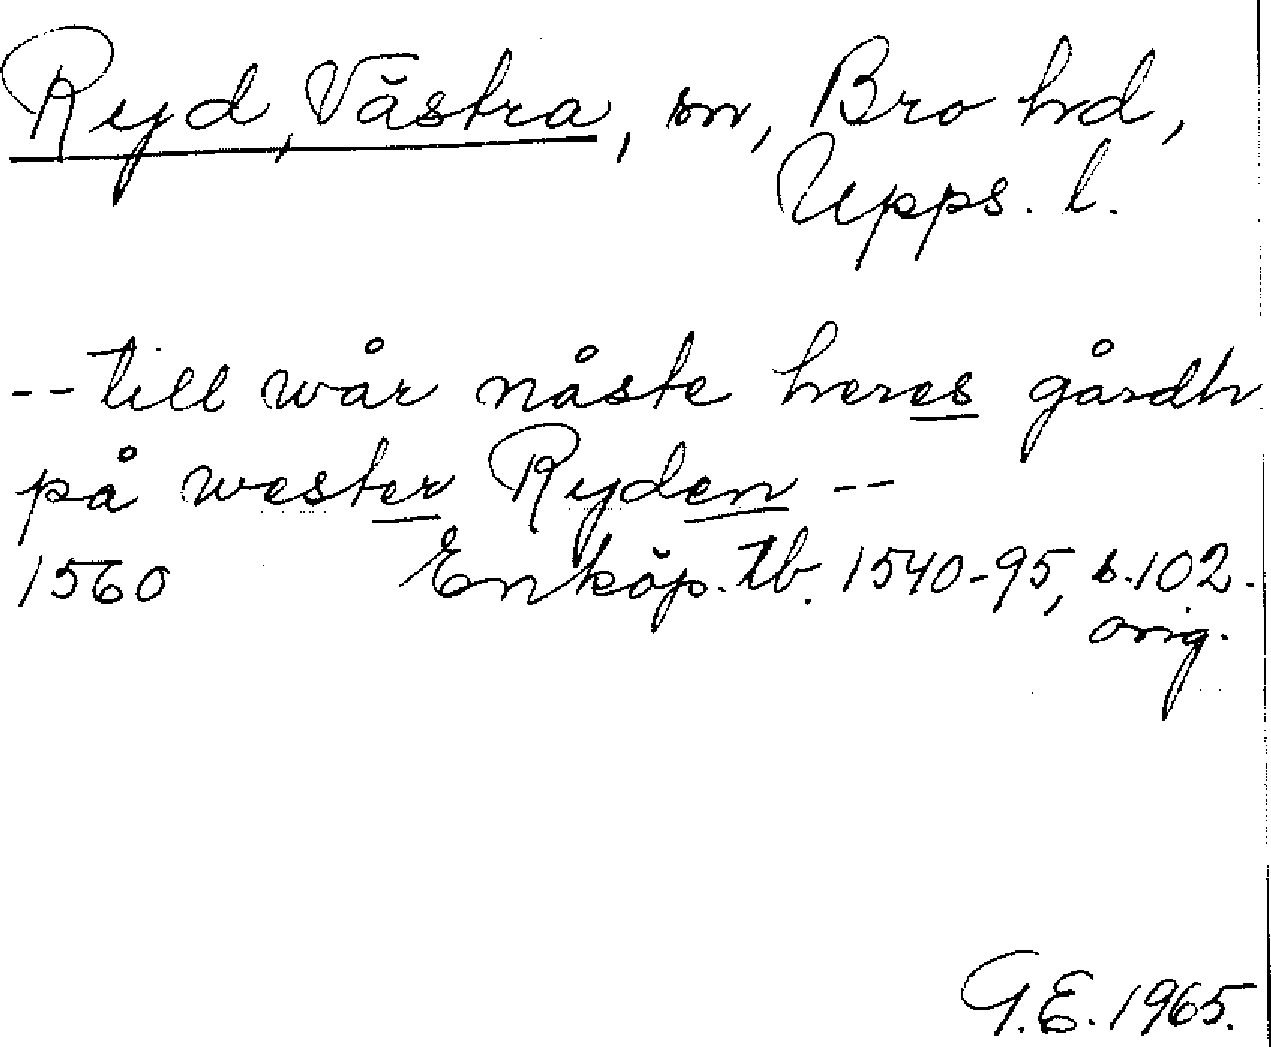 Ryd, Västra, sn, Bro hd,
Upps. l.
-- till wår nåste heres gårdh
på wester Ryden --
1560 Enköp. tb. 1540-95, s. 102.
orig.
G.E. 1965.